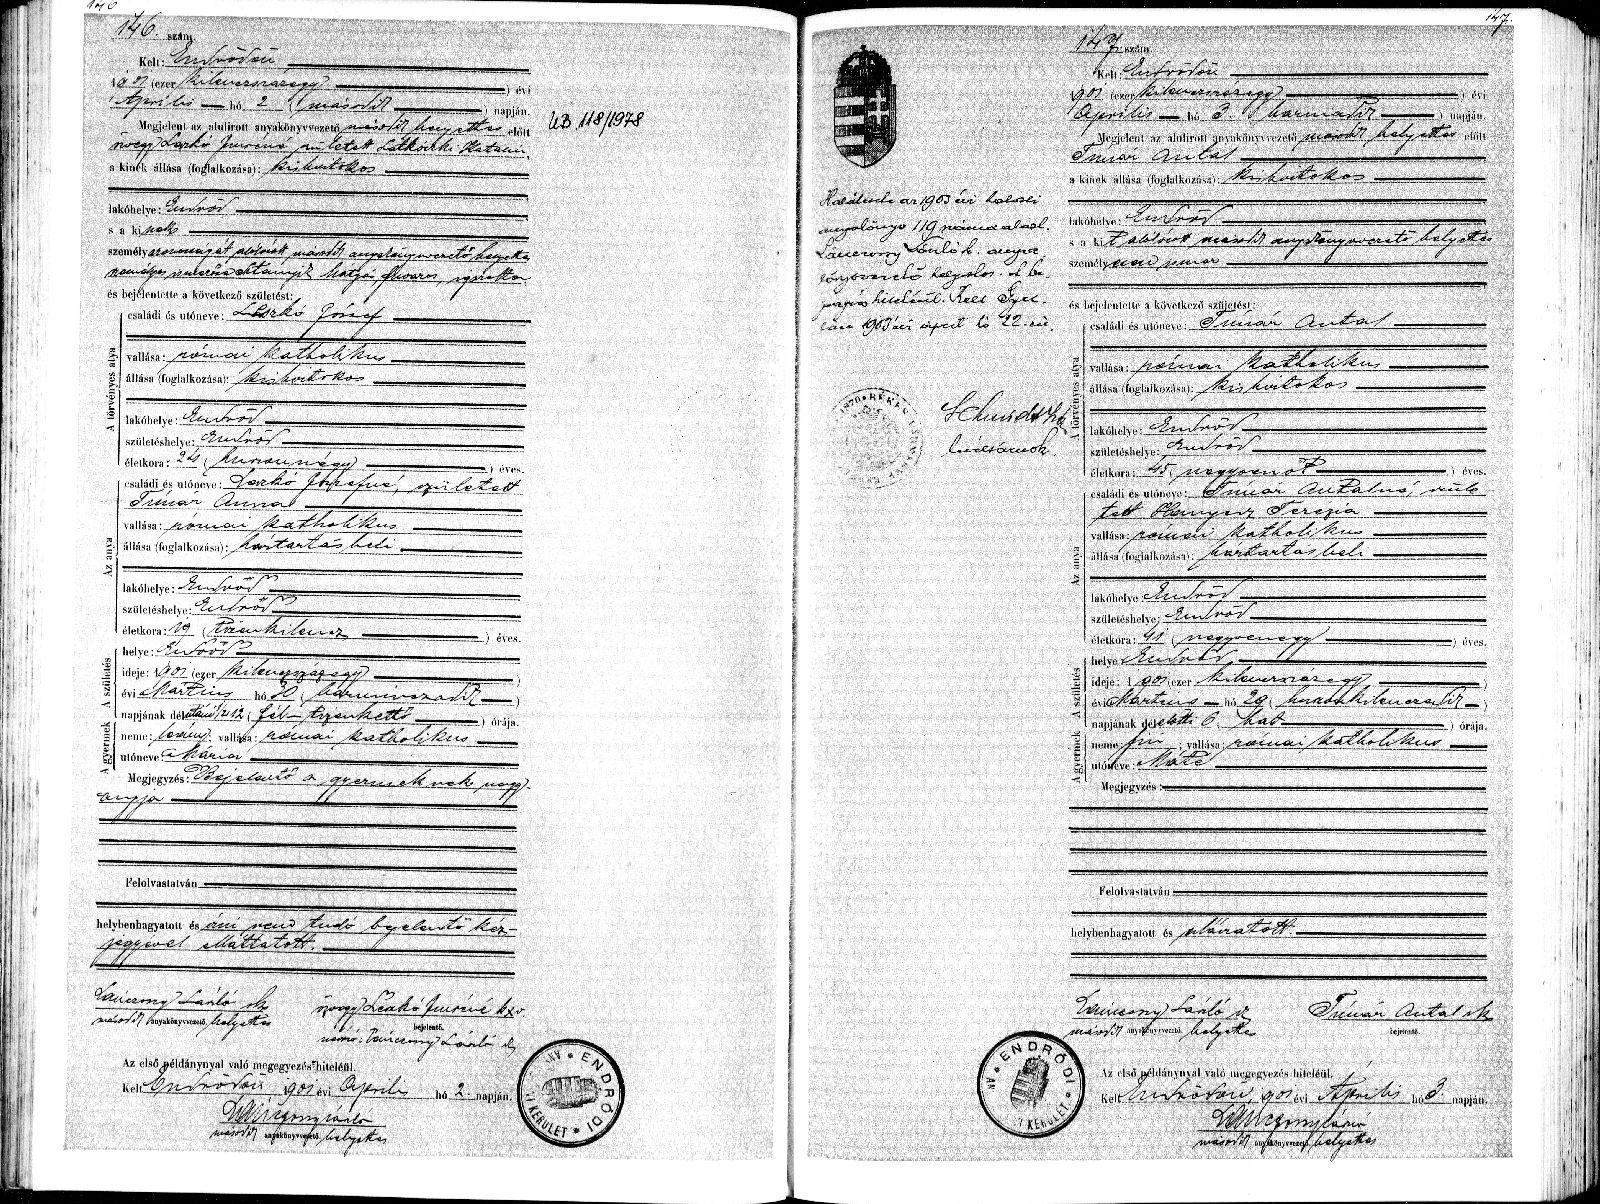 146
146. szám.
Kelt: Endrődön
1901 (ezer kilencszázegy) évi
Április hó 2 (második) napján.
Megjelent az alulirott anyakönyvvezető második helyettes előtt
özvegy Laskó Imréné született
a kinek állása (foglalkozása): kisbirtokos
lakóhelye: Endrőd
s a kinek
személyazonosságát alólirott második anyakönyvvezető helyettes
személyes
és bejelentette a következő születést:
A törvényes atya
családi és utóneve: Laskó József
vallása: római katholikus
állása (foglalkozása): kisbirtokos
lakóhelye: Endrőd
születéshelye: Endrőd
életkora: 24 (huszonnégy) éves.
Az anya
családi és utóneve: Laskó Józsefné, született
Timár Anna
vallása: római katholikus
állása (foglalkozása): háztartásbeli
lakóhelye: Endrőd
születéshelye: Endrőd
életkora: 19 (tizenkilencz) éves.
A születés
helye: Endrőd
ideje: 1901 (ezer kilencszázegy)
évi Március hó 30 (harminczadik)
napjának délutáni 1/2 12 (fél tizenkettő) órája.
A gyermek
neme: leány; vallása: római katholikus
utóneve: Mária
Megjegyzés: Bejelentő a gyermeknek nagy-
anyja
Felolvastatván
helybenhagyatott és írni nem tudó bejelentő kéz-
jegyével elláttatott.
Lánczony László sk
második anyakönyvvezető helyettes
özvegy Laskó Imréné kxv
bejelentő.
Lánczony László sk
Az első példánynyal való megegyezés hiteléül.
Kelt Endrődön 1901 évi Április hó 2 napján.
Lánczony László
második anyakönyvvezető helyettes
ENDRŐDI ANYAKÖNYVI KERÜLET
UB 118/1978
147.
147 szám.
Kelt: Endrődön
1901 (ezer kilencszázegy) évi
Április hó 3. (harmadik) napján.
Megjelent az alulirott anyakönyvvezető második helyettes előtt
Timár Antal
a kinek állása (foglalkozása): kisbirtokos
lakóhelye: Endrőd
s a kit alólirott második anyakönyvvezető helyettes
személyesen ismer
és bejelentette a következő születést:
A törvényes atya
családi és utóneve: Timár Antal
vallása: római katholikus
állása (foglalkozása): kisbirtokos
lakóhelye: Endrőd
születéshelye: Endrőd
életkora: 45 (negyvenöt) éves.
Az anya
családi és utóneve: Timár Antalné, szüle-
tett Hanyecz Terézia
vallása: római katholikus
állása (foglalkozása): háztartásbeli
lakóhelye: Endrőd
születéshelye: Endrőd
életkora: 41 (negyvenegy) éves.
A születés
helye: Endrőd
ideje: 1901 (ezer kilencszázegy)
évi Március hó 29 (huszonkilenczedik)
napjának délelőtti 6. (hat) órája.
A gyermek
neme: fiú; vallása: római katholikus
utóneve: Máté
Megjegyzés:
Felolvastatván
helybenhagyatott és aláiratott.
Lánczony László sk
második anyakönyvvezető helyettes
Timár Antal sk
bejelentő.
Az első példánynyal való megegyezés hiteléül.
Kelt Endrődön, 1901 évi Április hó 3. napján.
Lánczony László
második anyakönyvvezető helyettes
ENDRŐDI ANYAKÖNYVI KERÜLET
az 1903 évi haláleseti
119 száma alatt.
Lánczony László h. anya-
könyvvezető be-
jegyzés hiteléül. Kelt Gyu-
lán 1903 évi április hó 22-én.
levéltárnok.